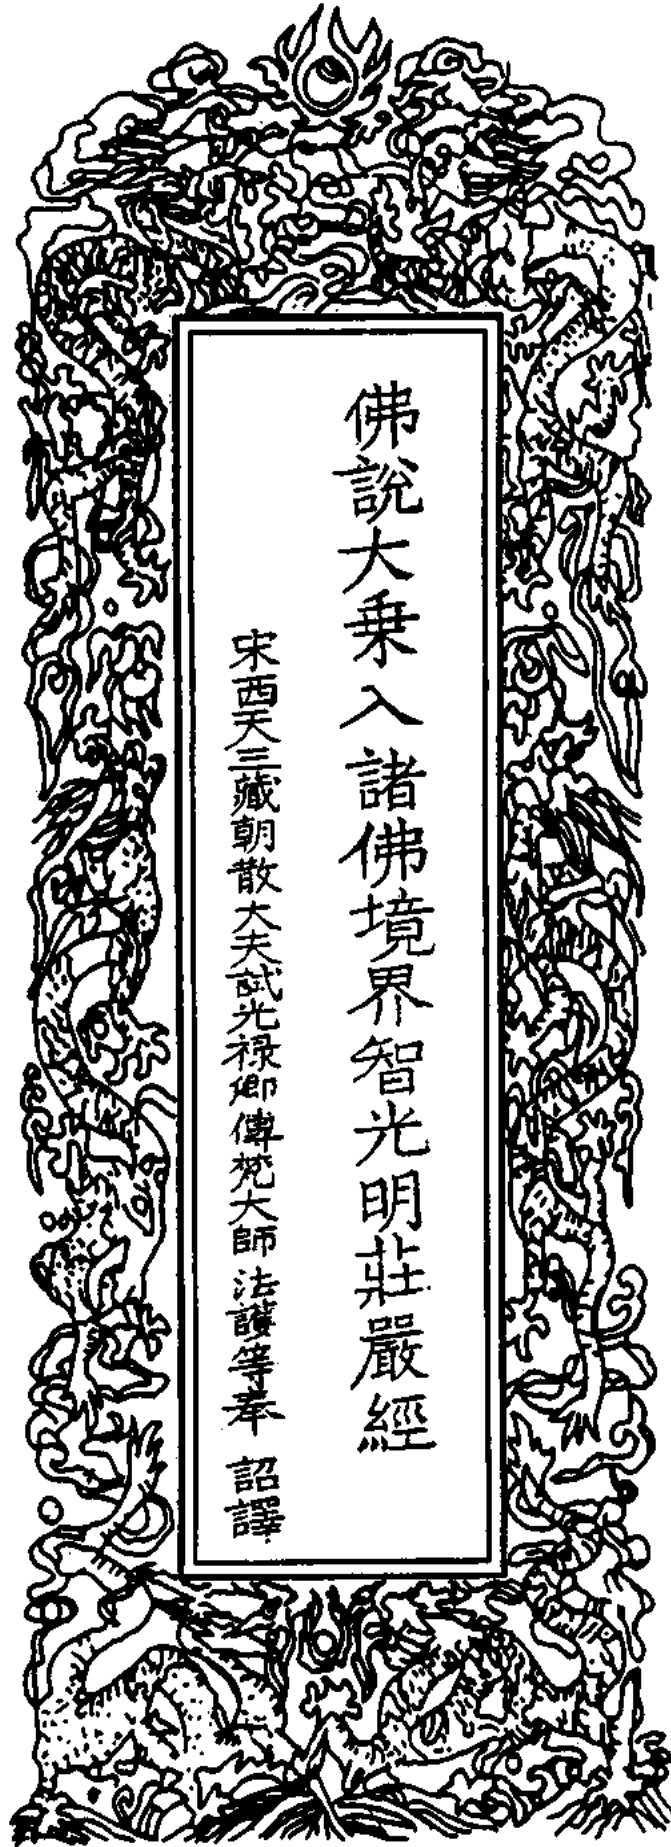 佛說大乗入諸佛境界智光明莊嚴經
宋西天三藏朝散大夫試光禄卿傳梵大師法護等奉 詔譯